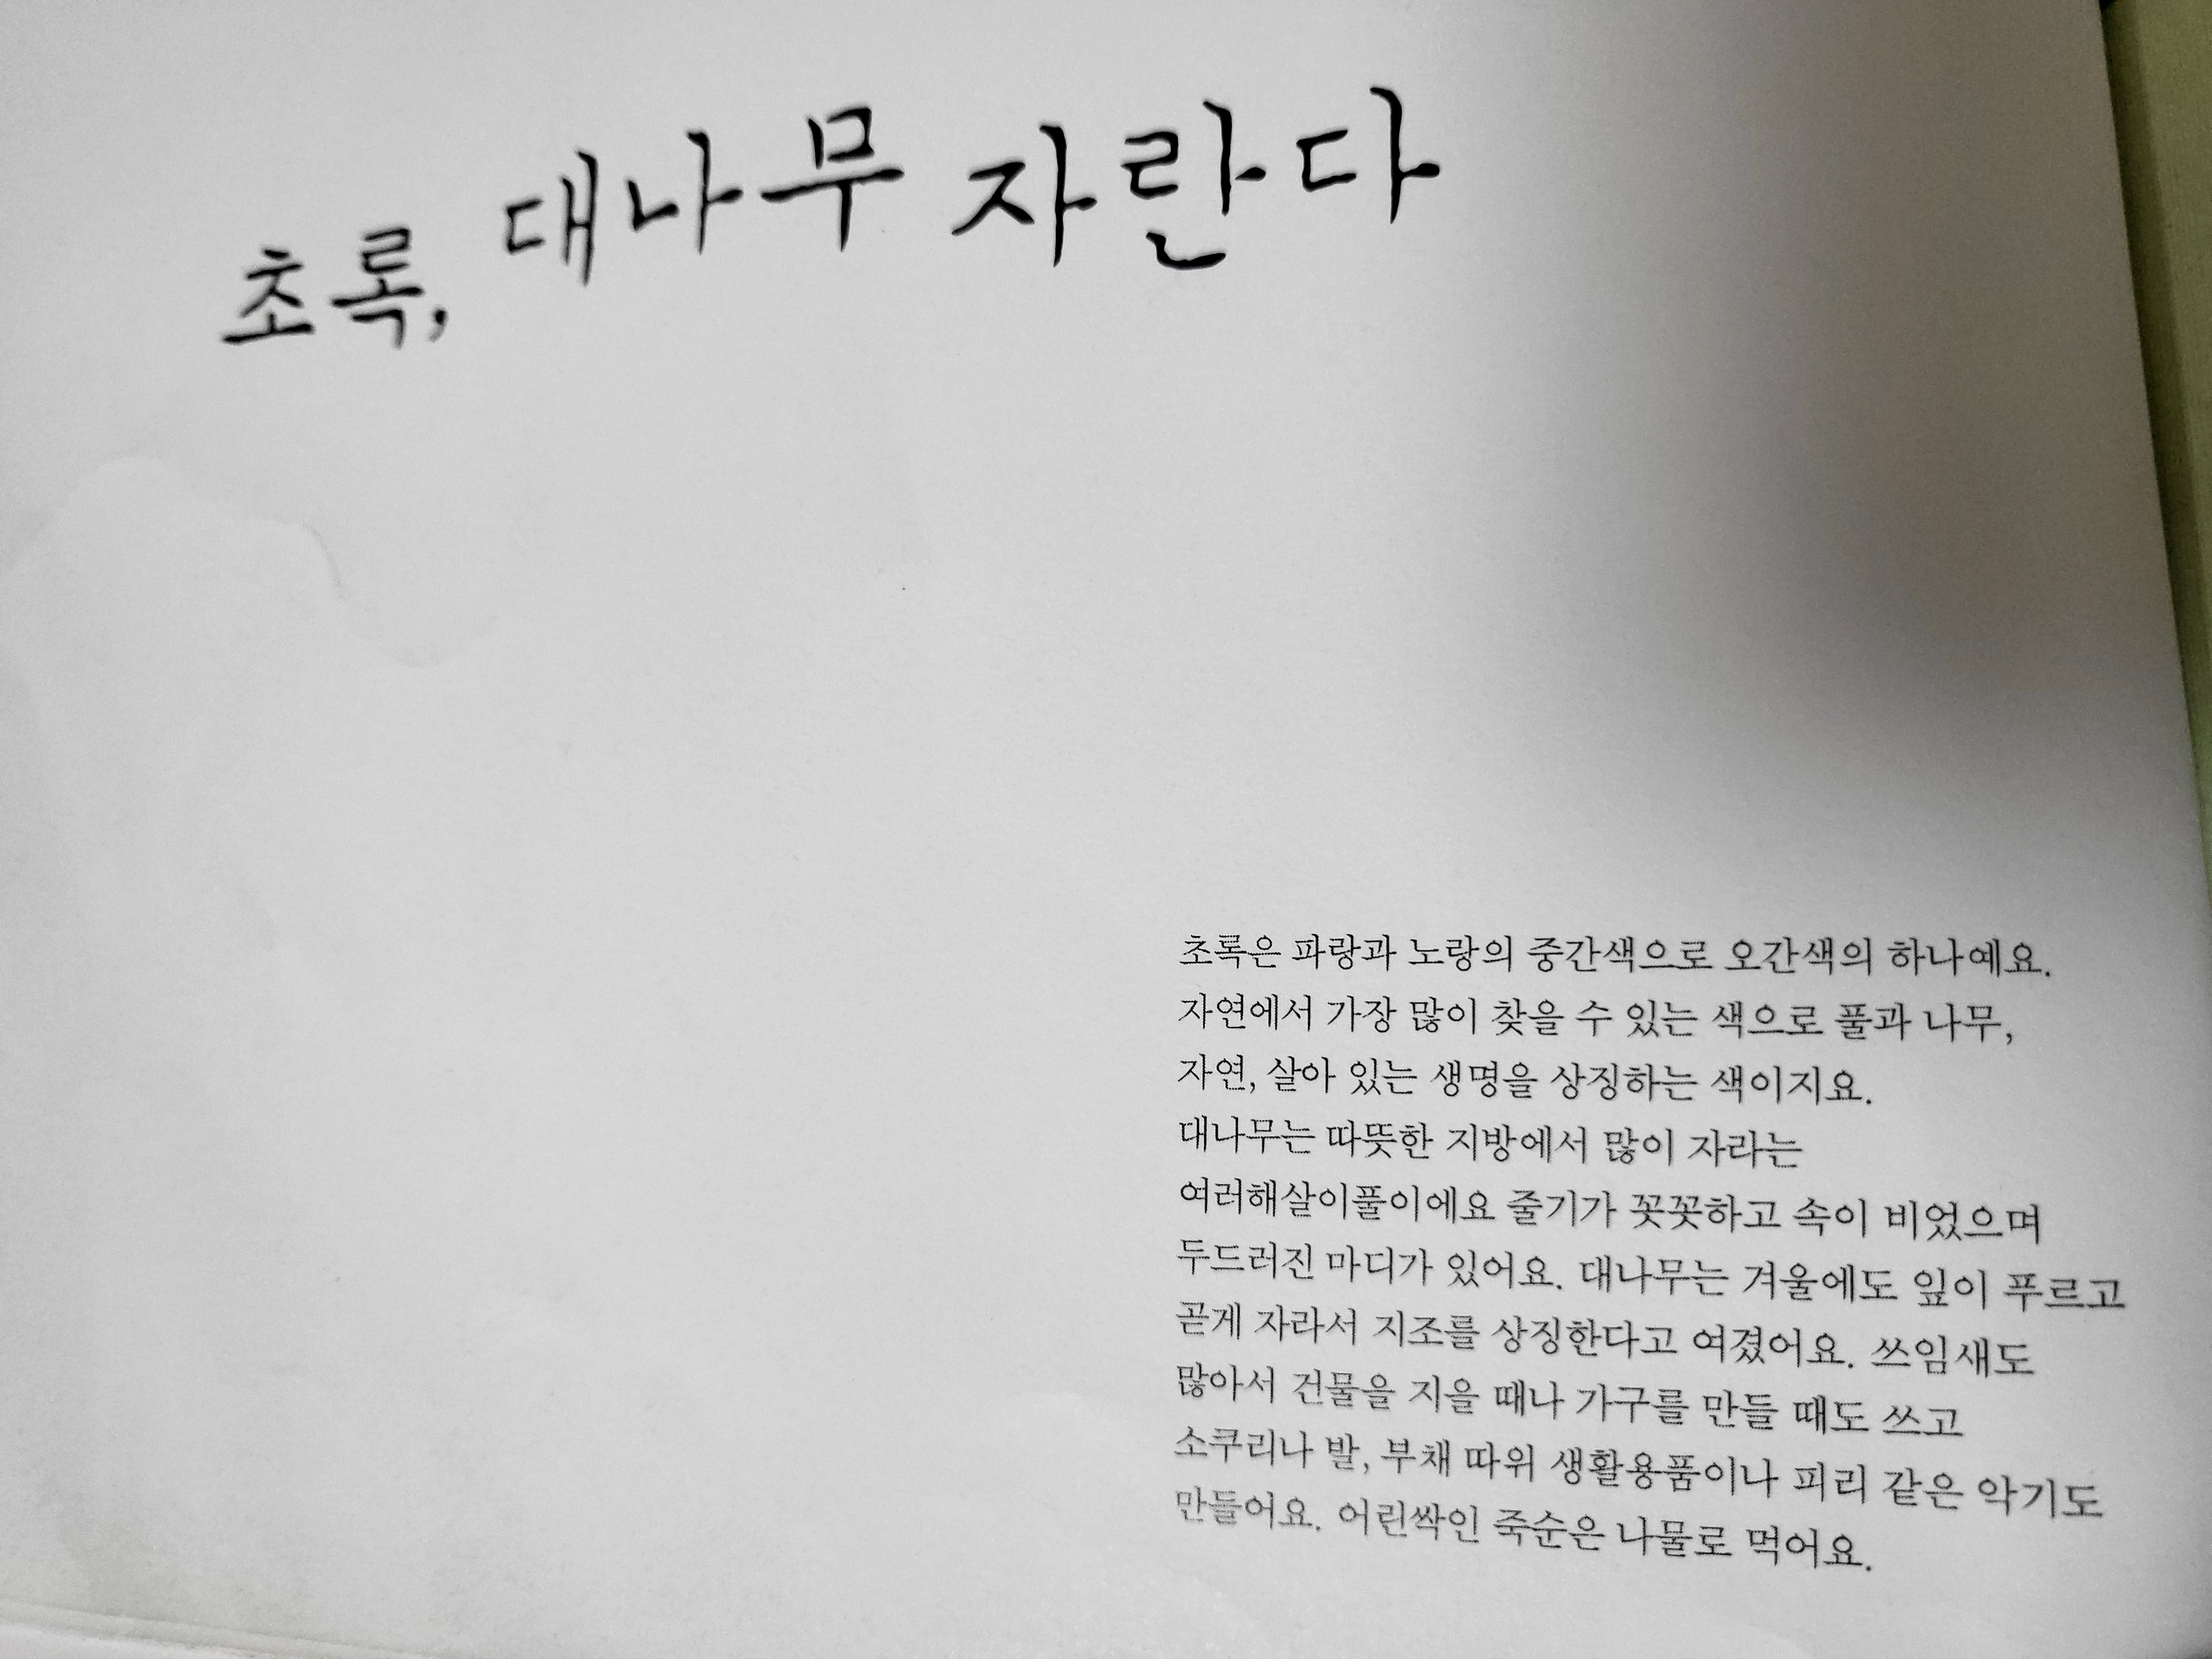 초록, 대나무 자란다
초록은 파랑과 노랑의 중간색으로 오간색의 하나예요.
자연에서 가장 많이 찾을 수 있는 색으로 풀과 나무,
자연, 살아 있는 생명을 상징하는 색이지요.
대나무는 따뜻한 지방에서 많이 자라는
여러해살이풀이에요 줄기가 꼿꼿하고 속이 비었으며
두드러진 마디가 있어요. 대나무는 겨울에도 잎이 푸르고
곧게 자라서 지조를 상징한다고 여겼어요. 쓰임새도
많아서 건물을 지을 때나 가구를 만들 때도 쓰고
소쿠리나 발, 부채 따위 생활용품이나 피리 같은 악기도
만들어요. 어린싹인 죽순은 나물로 먹어요.